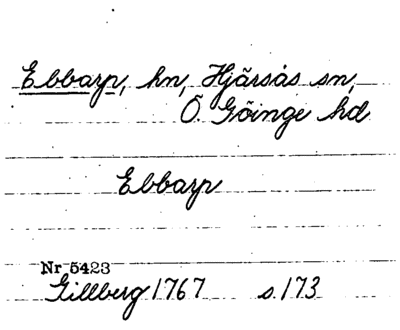 Ebbarp, hn, Hjärsås sn,
Ö. Göinge hd
Ebbarp
Nr 5423
Gillberg 1767 s. 173